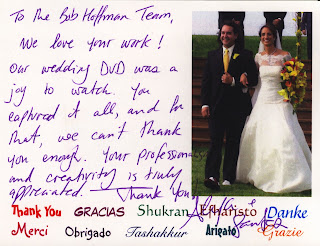 To the Bob Hoffman Team,
We love your work!
Our wedding DVD was a
joy to watch. You
captured it all, and for
that, we can't thank
you enough. Your professional
and creativity is truly
appreciated. Thank You!
Thank You GRACIAS Shukran Efharisto Danke
Merci Obrigado Tashakkur Arigato Grazie